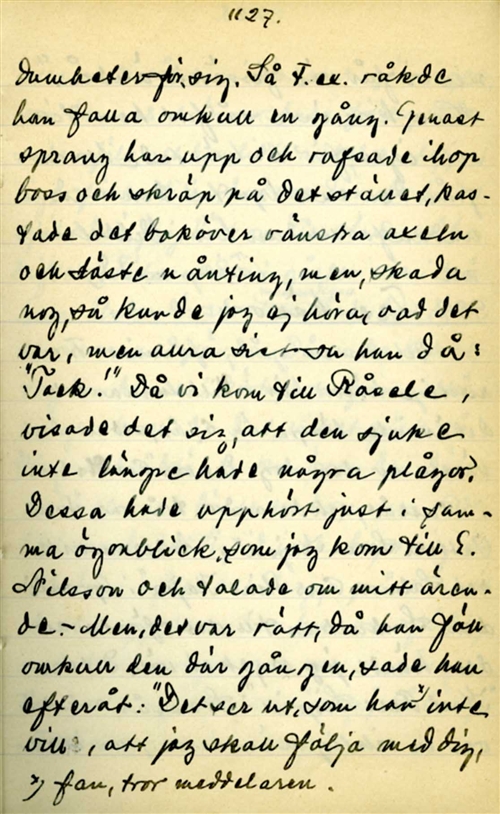 1127.
dumheter för sig. Så t. ex. råkde
han falla omkull en gång. Genast
sprang han upp och rafsade ihop
boss och skräp på det stället, kas-
tade det baköver vänstra axeln
och läste nånting, men, skada
nog, så kunde jag ej höra, vad det
var, men allra sist sa han då:
"Tack!" Då vi kom till Råsele,
visade det sig, att den sjuke
inte längre hade några plågor.
Dessa hade upphört just i sam-
ma ögonblick, som jag kom till E.
Nilsson och talade om mitt ären-
de.- Men, det var rätt, då han föll
omkull den där gången, sade han
efteråt: "Det ser ut, som han x) inte
vill, att jag skall följa med dig,
x) fan, tror meddelaren.